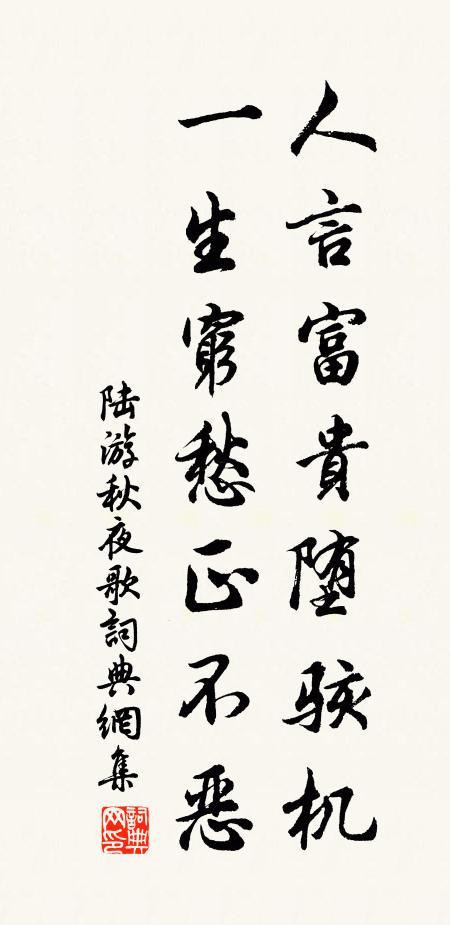 人言富貴堕駭机
一生窮愁正不惡
陆游秋夜歌詞典網集
詞典網印